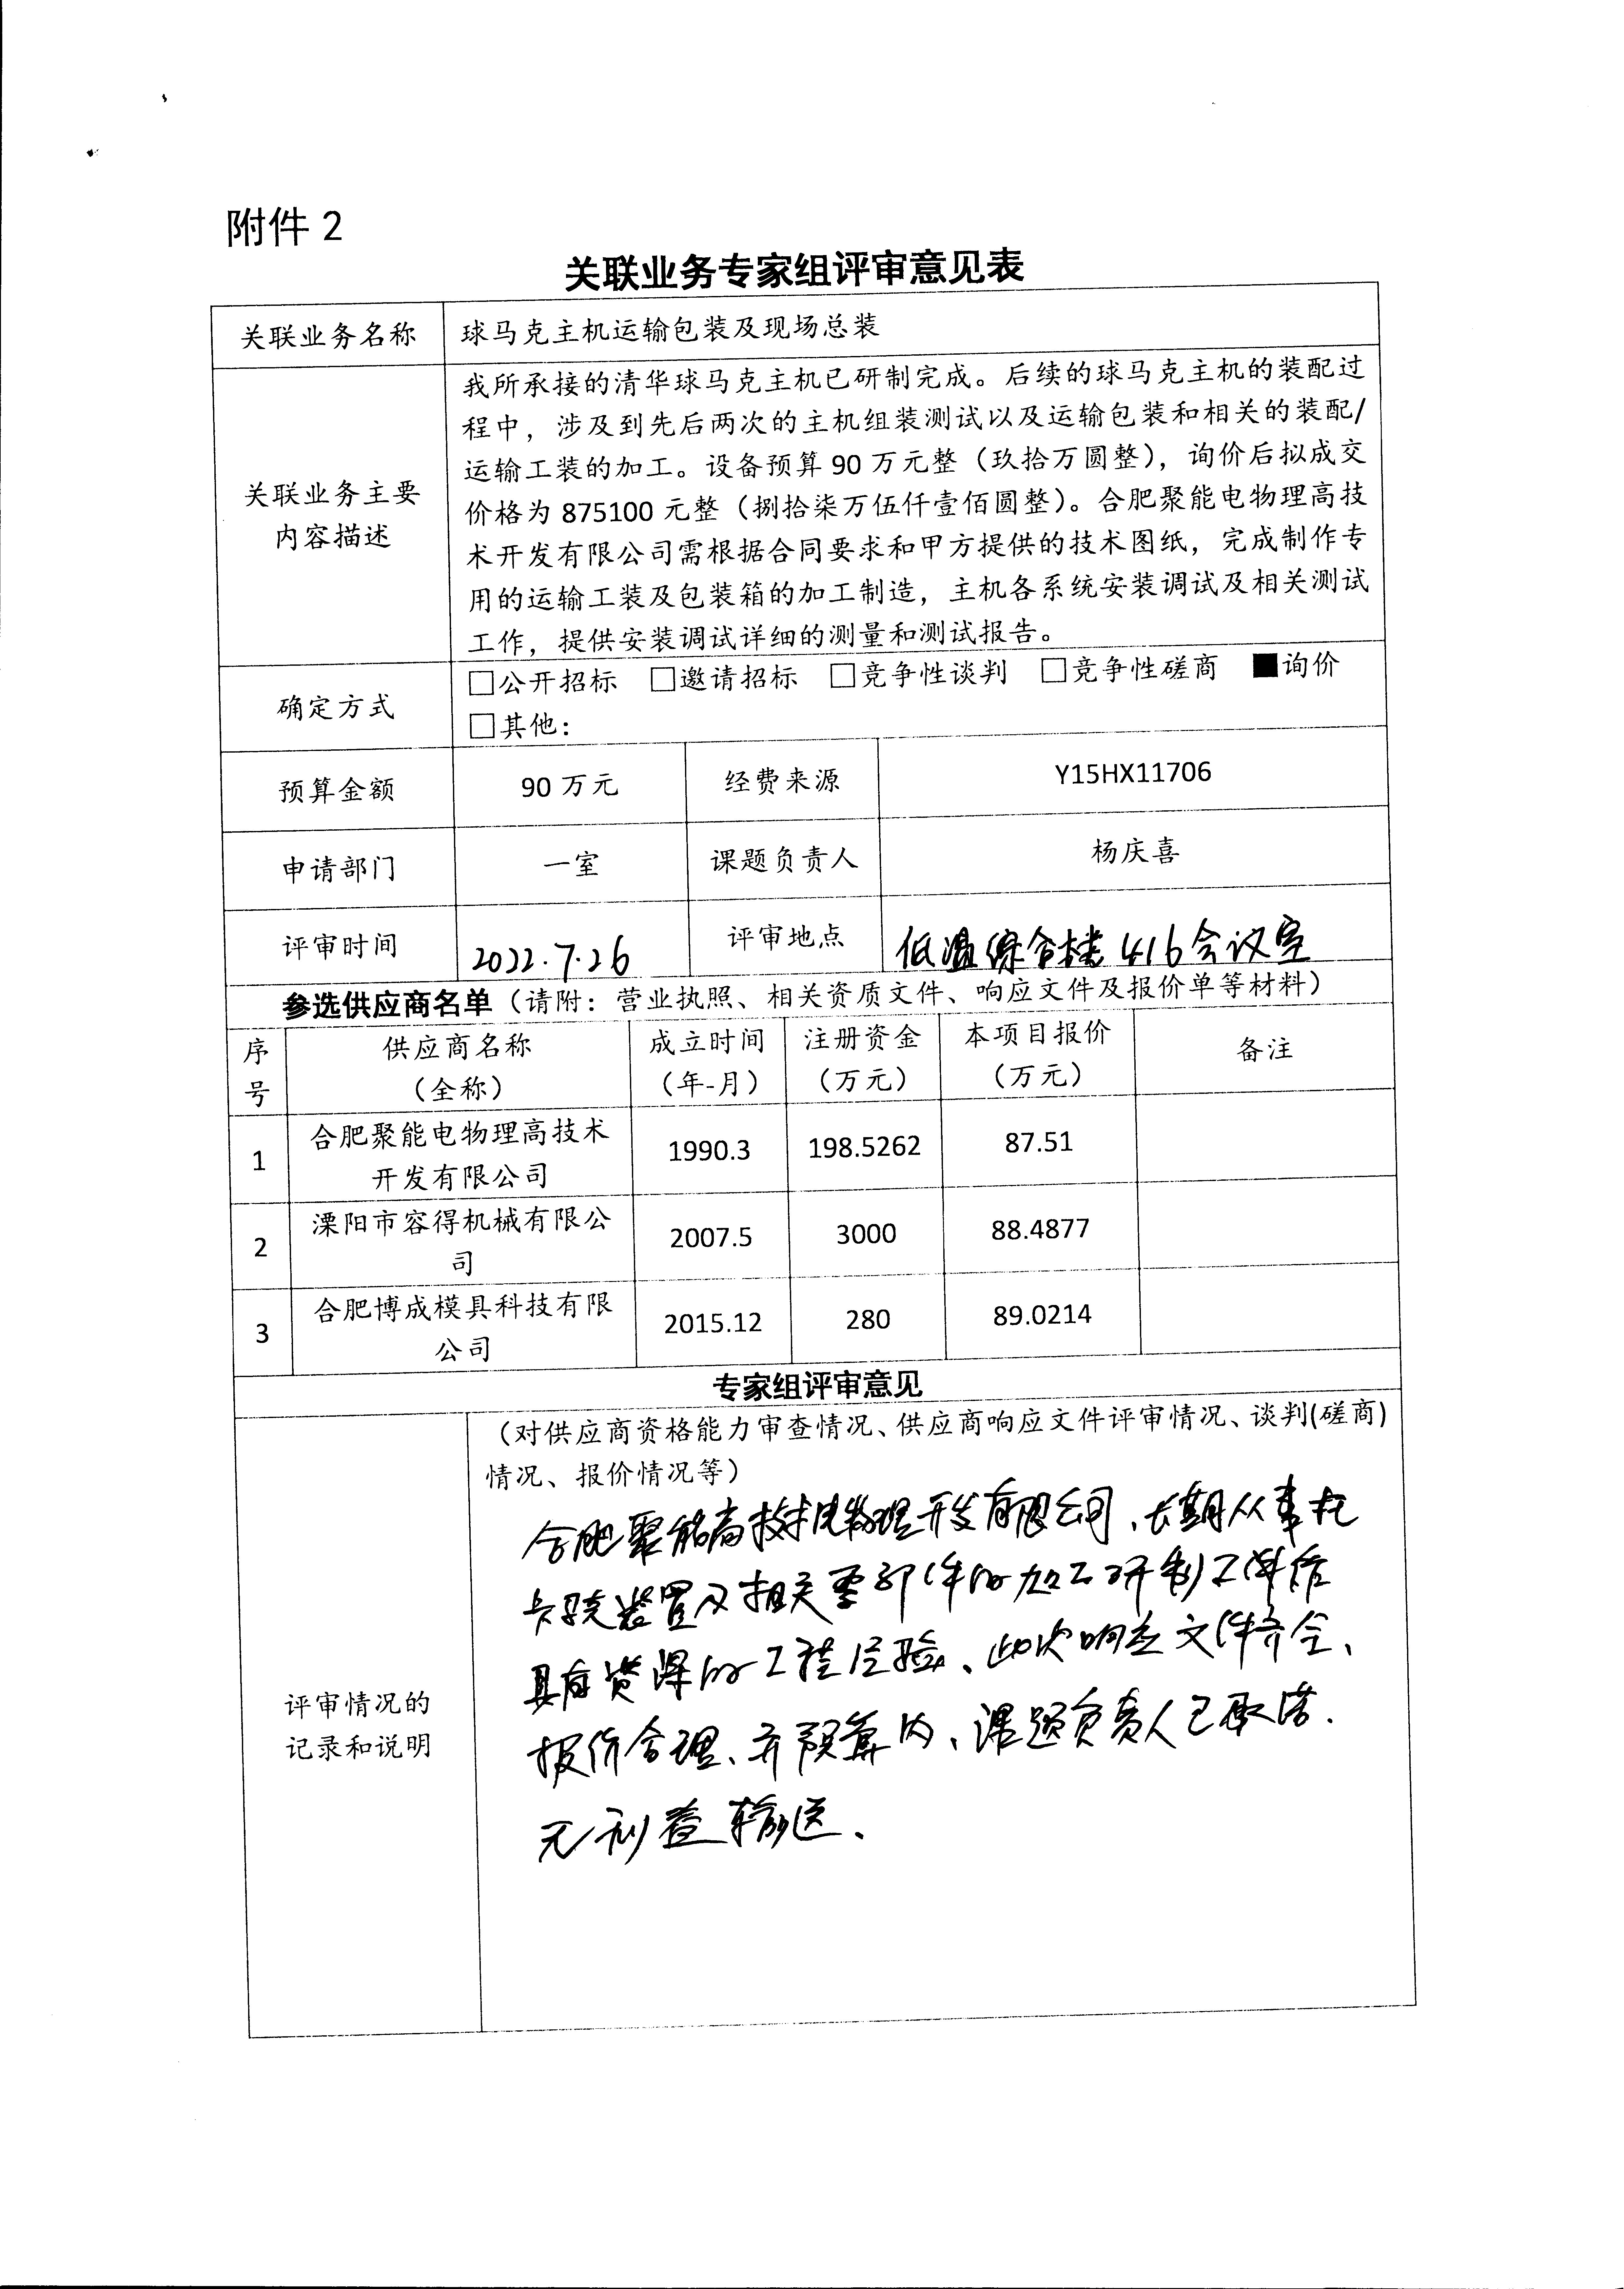 附件 2
关联业务专家组评审意见表
关联业务名称 球马克主机运输包装及现场总装
关联业务主要内容描述
我所承接的清华球马克主机已研制完成。后续的球马克主机的装配过
程中，涉及到先后两次的主机组装测试以及运输包装和相关的装配/
运输工装的加工。设备预算 90 万元整（玖拾万圆整），询价后拟成交
价格为 875100 元整（捌拾柒万伍仟壹佰圆整）。合肥聚能电物理高技
术开发有限公司需根据合同要求和甲方提供的技术图纸，完成制作专
用的运输工装及包装箱的加工制造，主机各系统安装调试及相关测试
工作，提供安装调试详细的测量和测试报告。
确定方式 □公开招标 □邀请招标 □竞争性谈判 □竞争性磋商 ■询价
□其他：
预算金额 90 万元 经费来源 Y15HX11706
申请部门 一室 课题负责人 杨庆喜
评审时间 2022.7.26 评审地点 低温综合楼416会议室
参选供应商名单（请附：营业执照、相关资质文件、响应文件及报价单等材料）
序号 供应商名称（全称） 成立时间（年-月） 注册资金（万元） 本项目报价（万元） 备注
1 合肥聚能电物理高技术开发有限公司 1990.3 198.5262 87.51
2 溧阳市容得机械有限公司 2007.5 3000 88.4877
3 合肥博成模具科技有限公司 2015.12 280 89.0214
专家组评审意见
评审情况的记录和说明
（对供应商资格能力审查情况、供应商响应文件评审情况、谈判(磋商)
情况、报价情况等）
合肥聚能高技术电物理开发有限公司、长期从事托
卡马克装置及相关零部件的加工研制工作
具有的工程经验、此次响应文件齐全、
报价合理、预算内、课题负责人已承诺.
无利益输送、